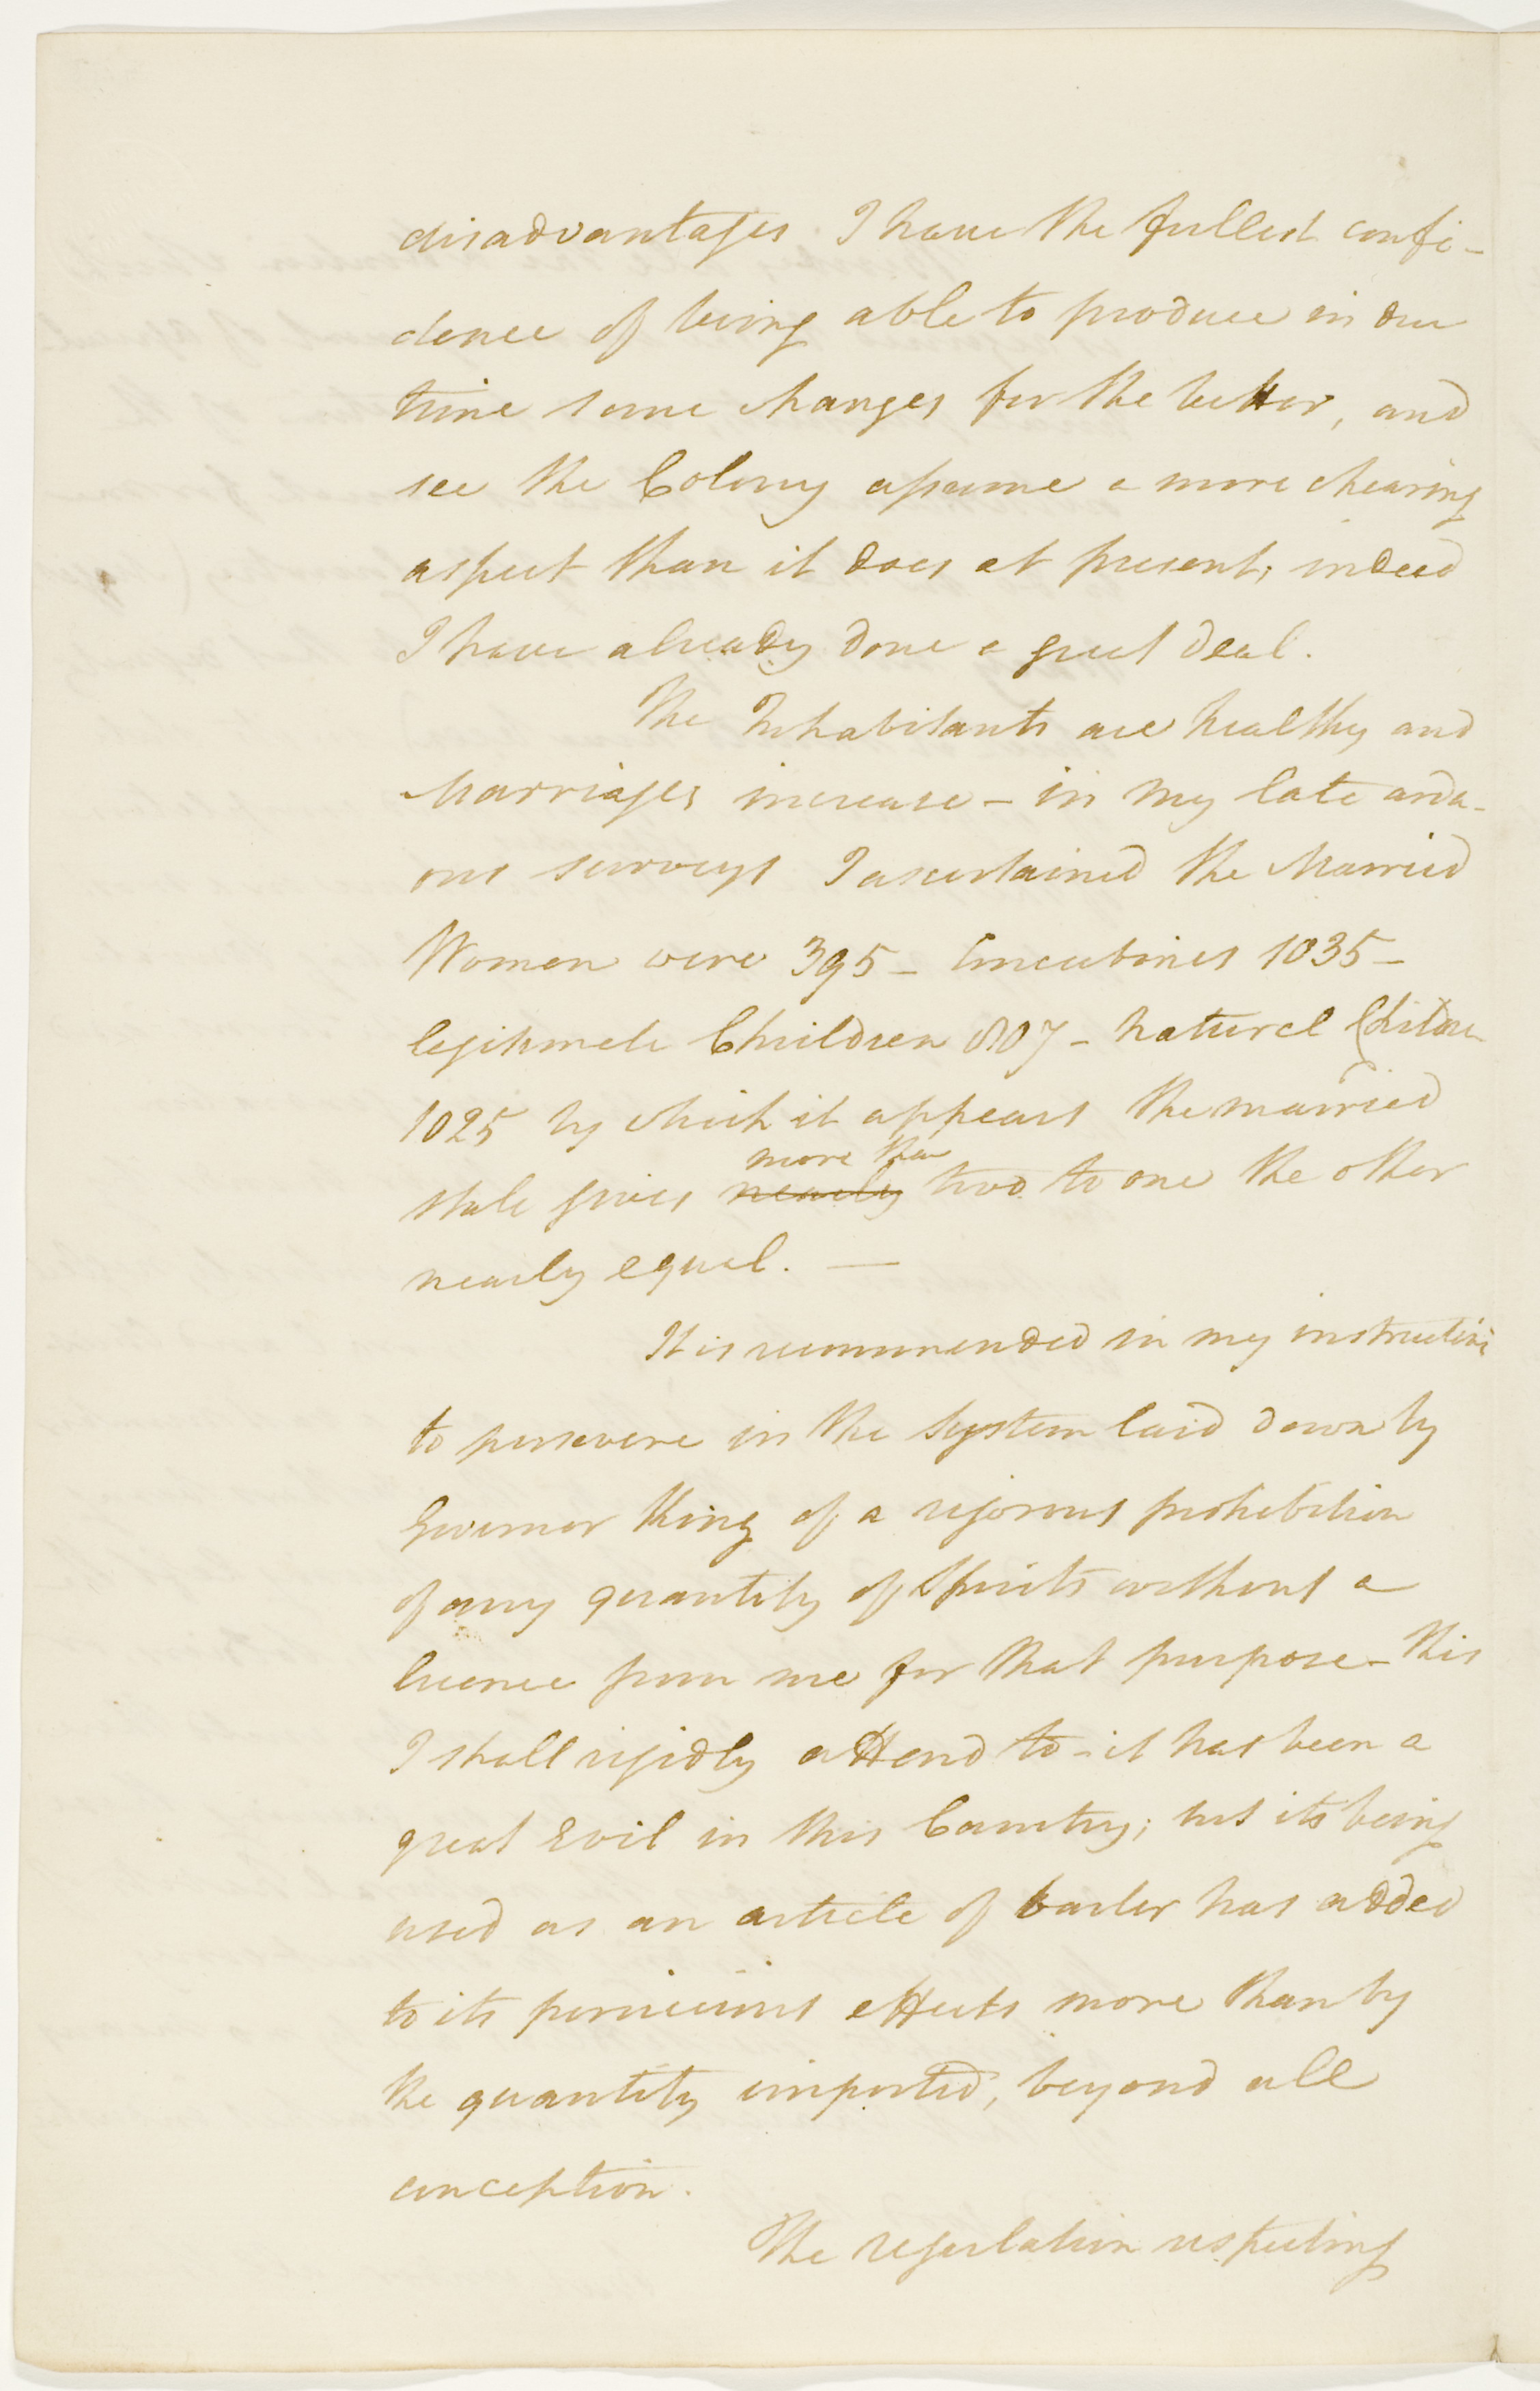 disadvantages I have the fullest confi-
dence of being able to produce in due
time some changes for the better, and
see the Colony assume a more chearing
aspect than it does at present, indeed
I have already done a great deal.
The Inhabitants are healthy and
Marriages increase - in my late ardu-
ous surveys I ascertained the Married
Women were 395 - Concubines 1035 -
legitimate Children 807 - natural Children
1025 by which it appears the married
more than
state gives nearly two to one the other
nearly equal. —
It is recommended in my instructions
to persevere in the System laid down by
Governor King of a rigorous prohibition
of any quantity of Spirits without a
licence from me for that purpose - this
I shall rigidly attend to - it has been a
great Evil in this Country; but its being
used as an article of barter has added
to its pernicious effects more than by
the quantity imported, beyond all
conception.
The regulation respecting